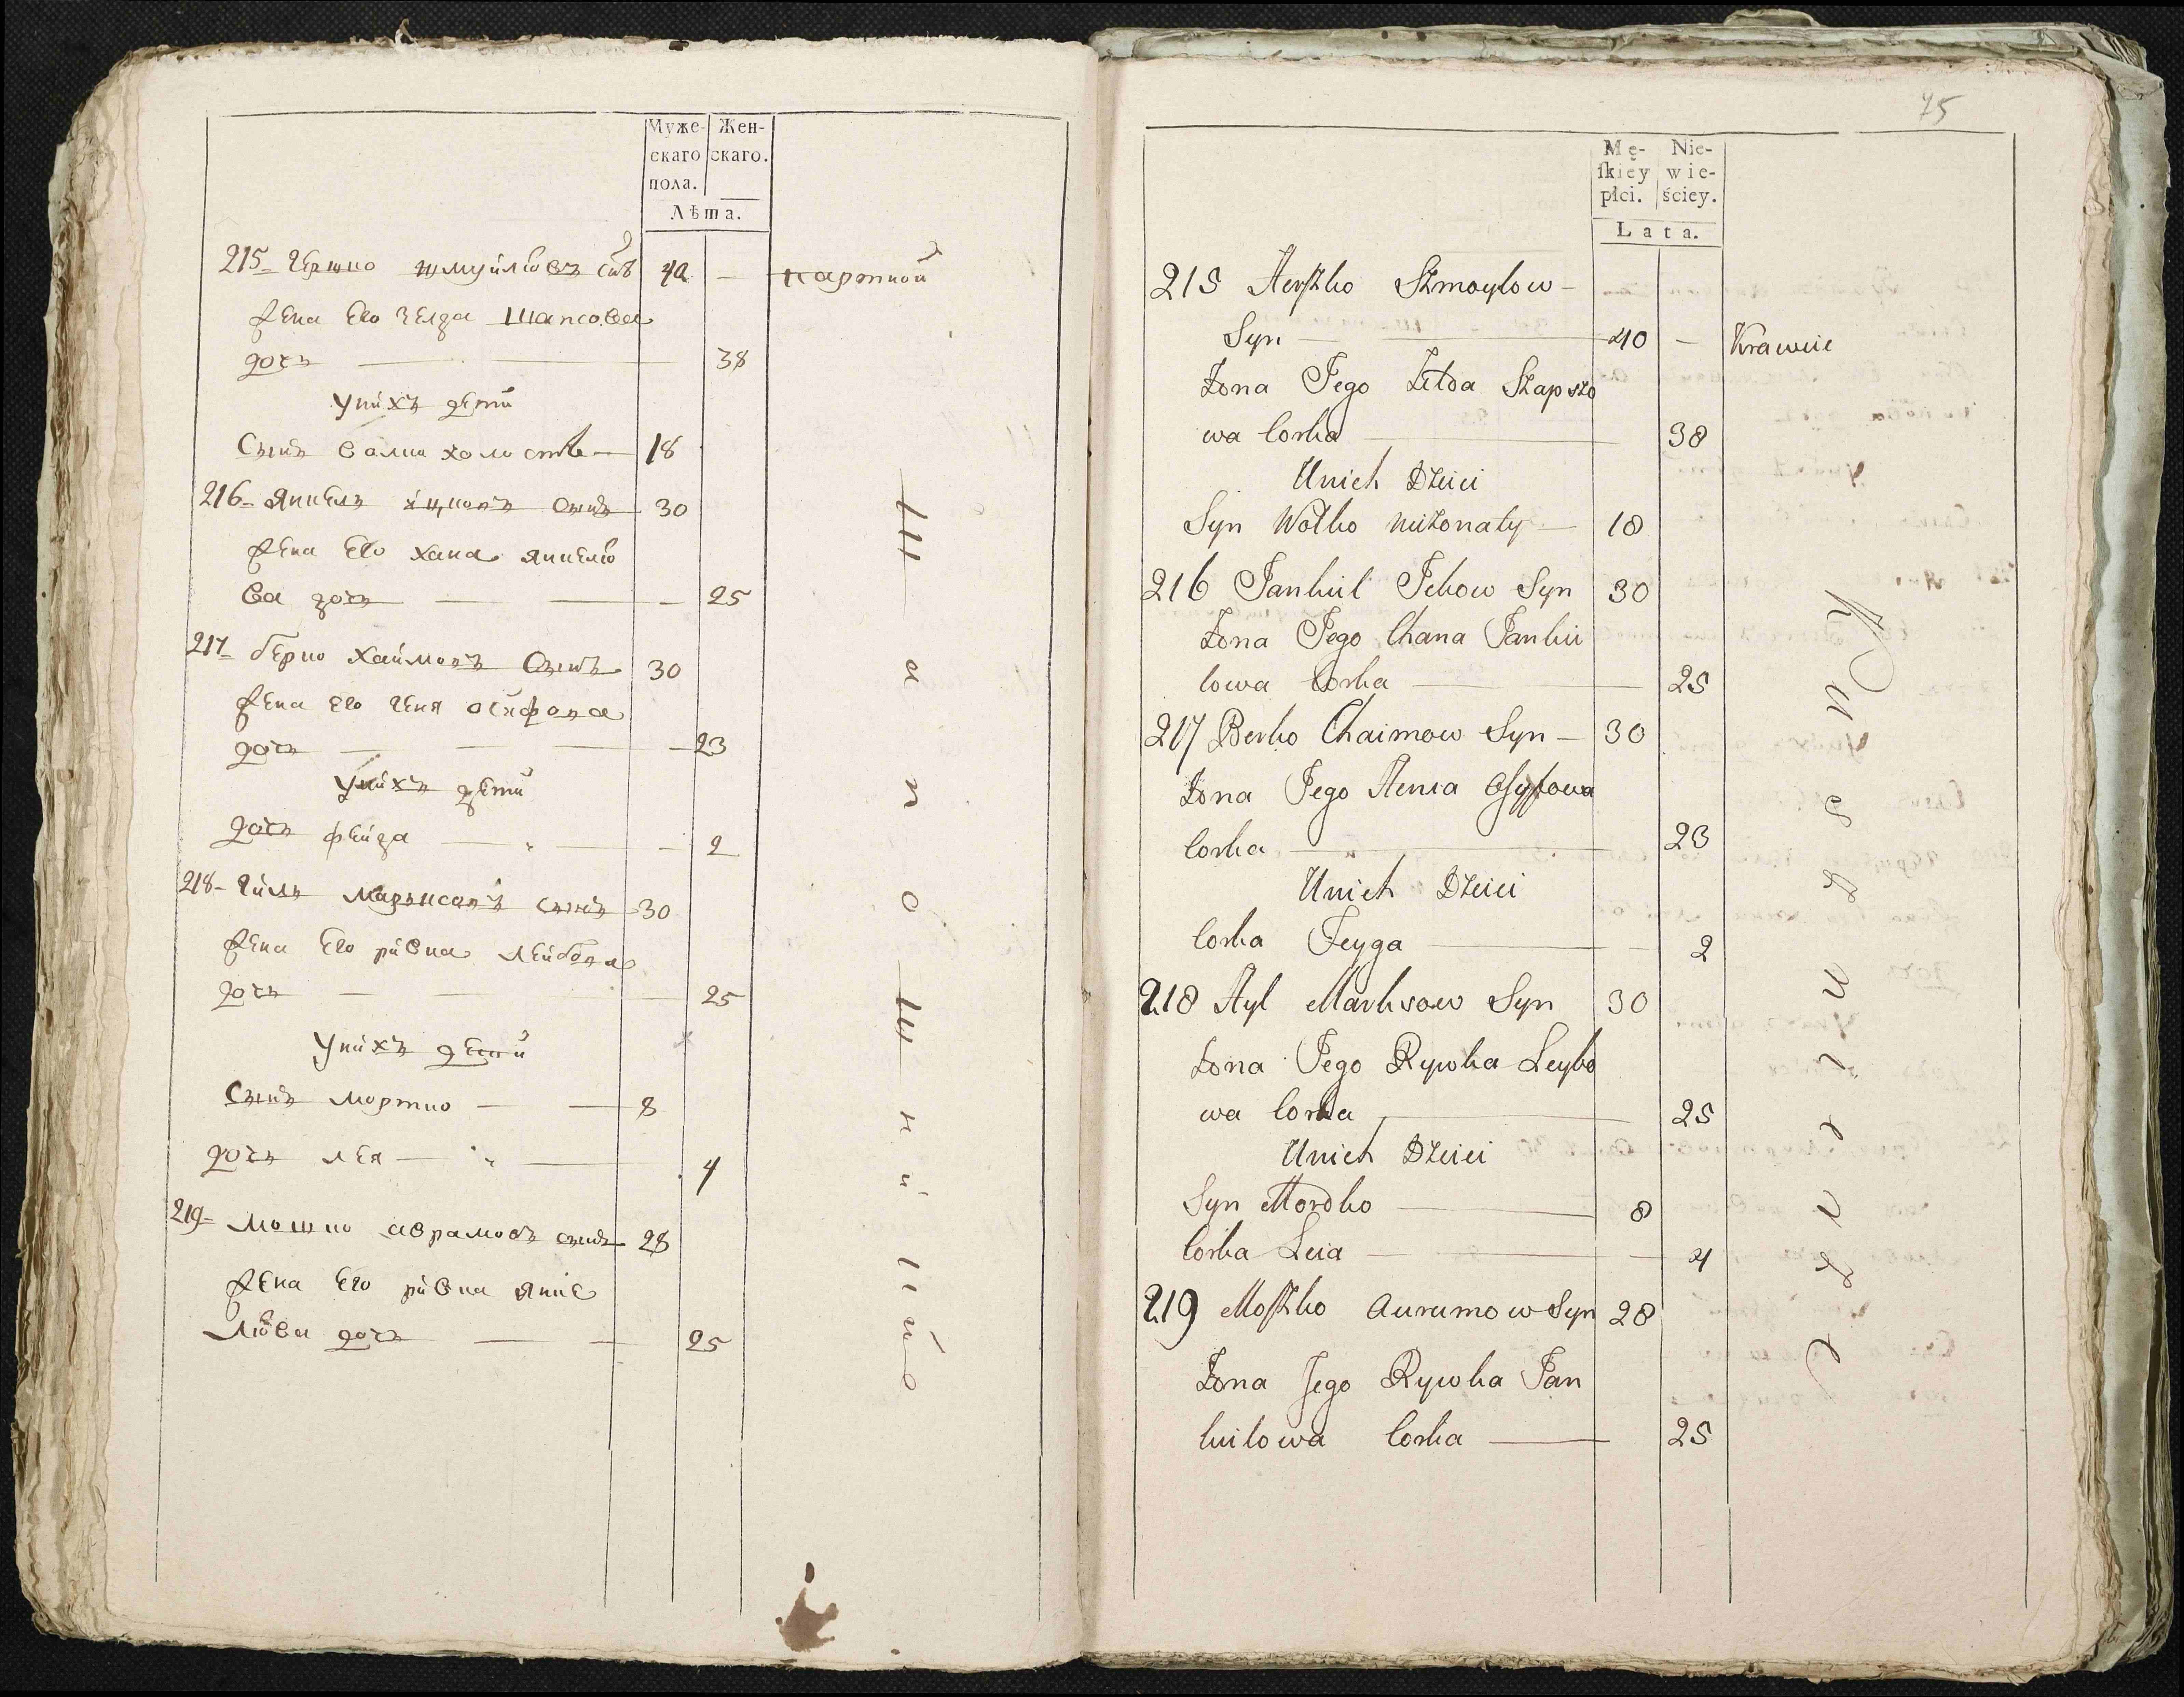 Муже-
скаго
пола.
Жен-
скаго.
Лѣта.
215 Гершко Шмуйловъ снъ 40 — партной
жена Его Зелда Шапсова
дочь — 38
У нихъ дети
Сынъ Волка холостъ — 18
216 Янкель Ицковъ Сынъ 30
жена Его Хана Янкело
ва дочь — 25
217 Берко Хаймовъ Сынъ 30
жена Его Геня Осифова
дочь — 23
У нихъ дети
дочь Фейга — 2
218 Гиль Марксовъ Сынъ 30
жена Его Ривка Лейбова
дочь — 25
У нихъ дети
Сынъ Мортко — 8
дочь Лея — 4
219 Мошко Аврамовъ сынъ 28
жена Его Ривка Янке
Лова дочь — 25
75
Mę-
ſkiey
płci.
Nie-
wie-
ściey.
Lata.
215 Herſzko Szmoylow
Syn — 40 — Krawiec
Żona Jego Zelda Szapszo
wa Corka — 38
U nich Dzieci
Syn Wolko nieżonaty — 18
216 Jankiel Ickow Syn 30
Żona Jego Chana Jankie
lowa Corka — 25
217 Berko Chaimow Syn — 30
Żona Jego Henia Osyfowa
Corka — 23
U nich Dzieci
Corka Feyga — 2
218 Hyl Marksow Syn 30
Żona Jego Rywka Leybo
wa Corka — 25
U nich Dzieci
Syn Mordko — 8
Corka Leia — 4
219 Moſzko Auramow Syn 28
Żona Jego Rywka Jan
kielowa Corka — 25